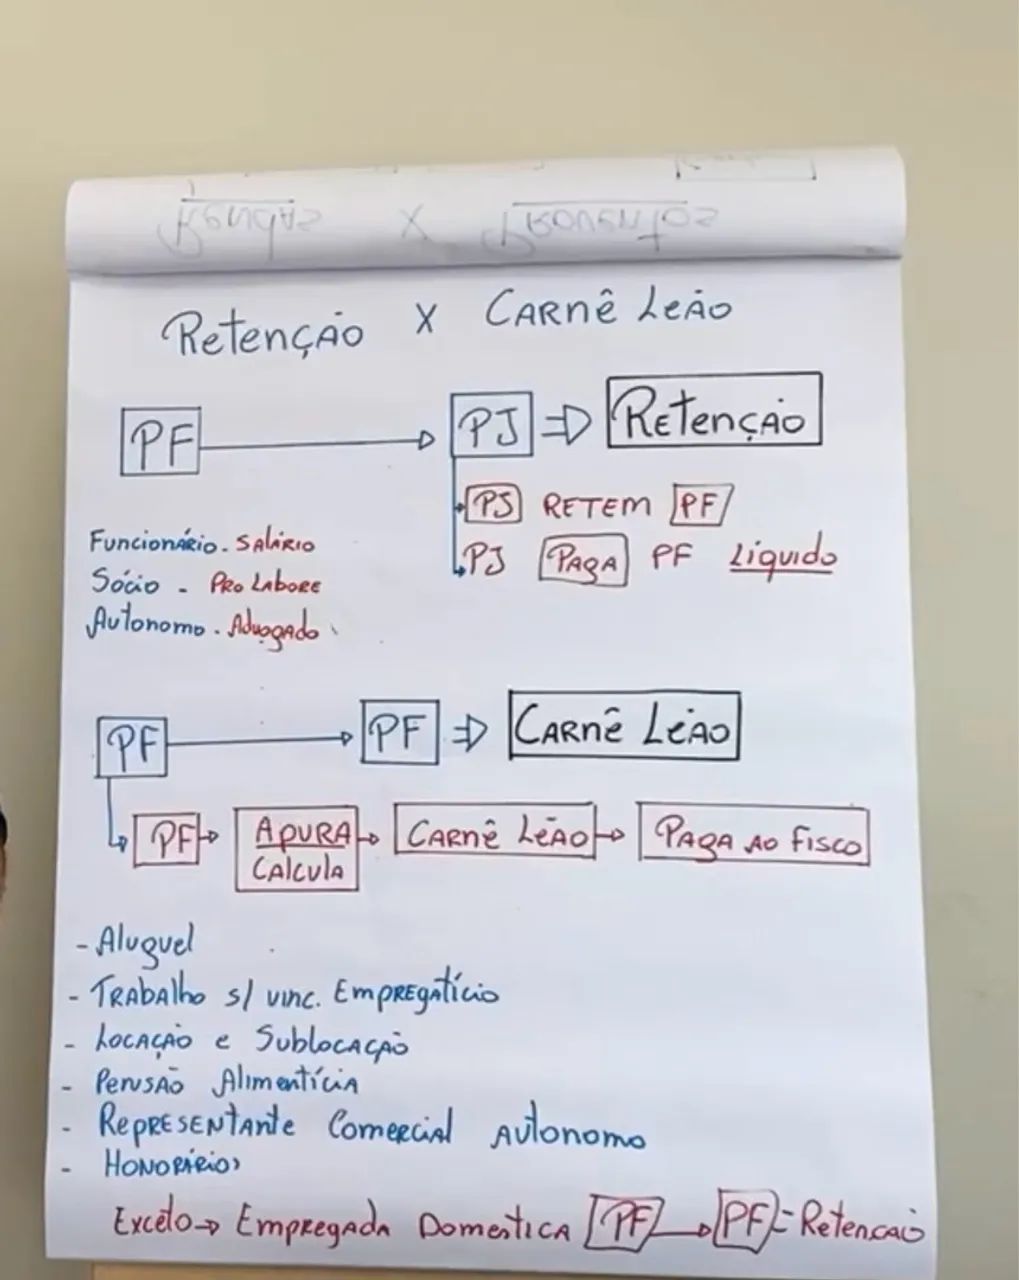 Retenção X Carnê Leão
PF PJ Retenção
PJ RETEM PF
PJ PAGA PF Líquido
Funcionário. Salário
Sócio - Pro Labore
Autonomo. Advogado
PF PF Carnê Leão
PF APURA CALCULA Carnê Leão PAGA AO FISCO
- Aluguel
- Trabalho s/ vinc. Empregatício
- Locação e Sublocação
- Pensão Alimentícia
- Representante Comercial Autonomo
- Honorários
Exceto → Empregada Domestica PF → PF = Retencaõ